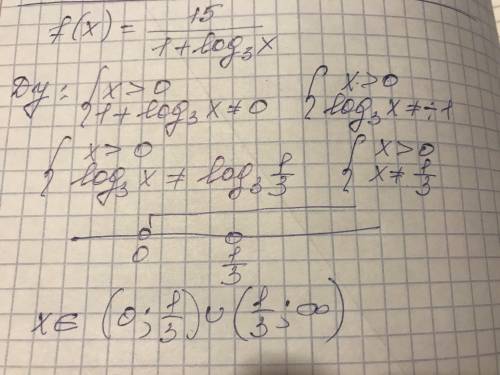 f(x) = 15 / (1 + log₃x)
Dy: { x > 0 { x > 0
1 + log₃x ≠ 0 log₃x ≠ -1
{ x > 0 { x > 0
log₃x ≠ log₃ 1/3 x ≠ 1/3
0 1/3
x ∈ (0; 1/3) ∪ (1/3; ∞)